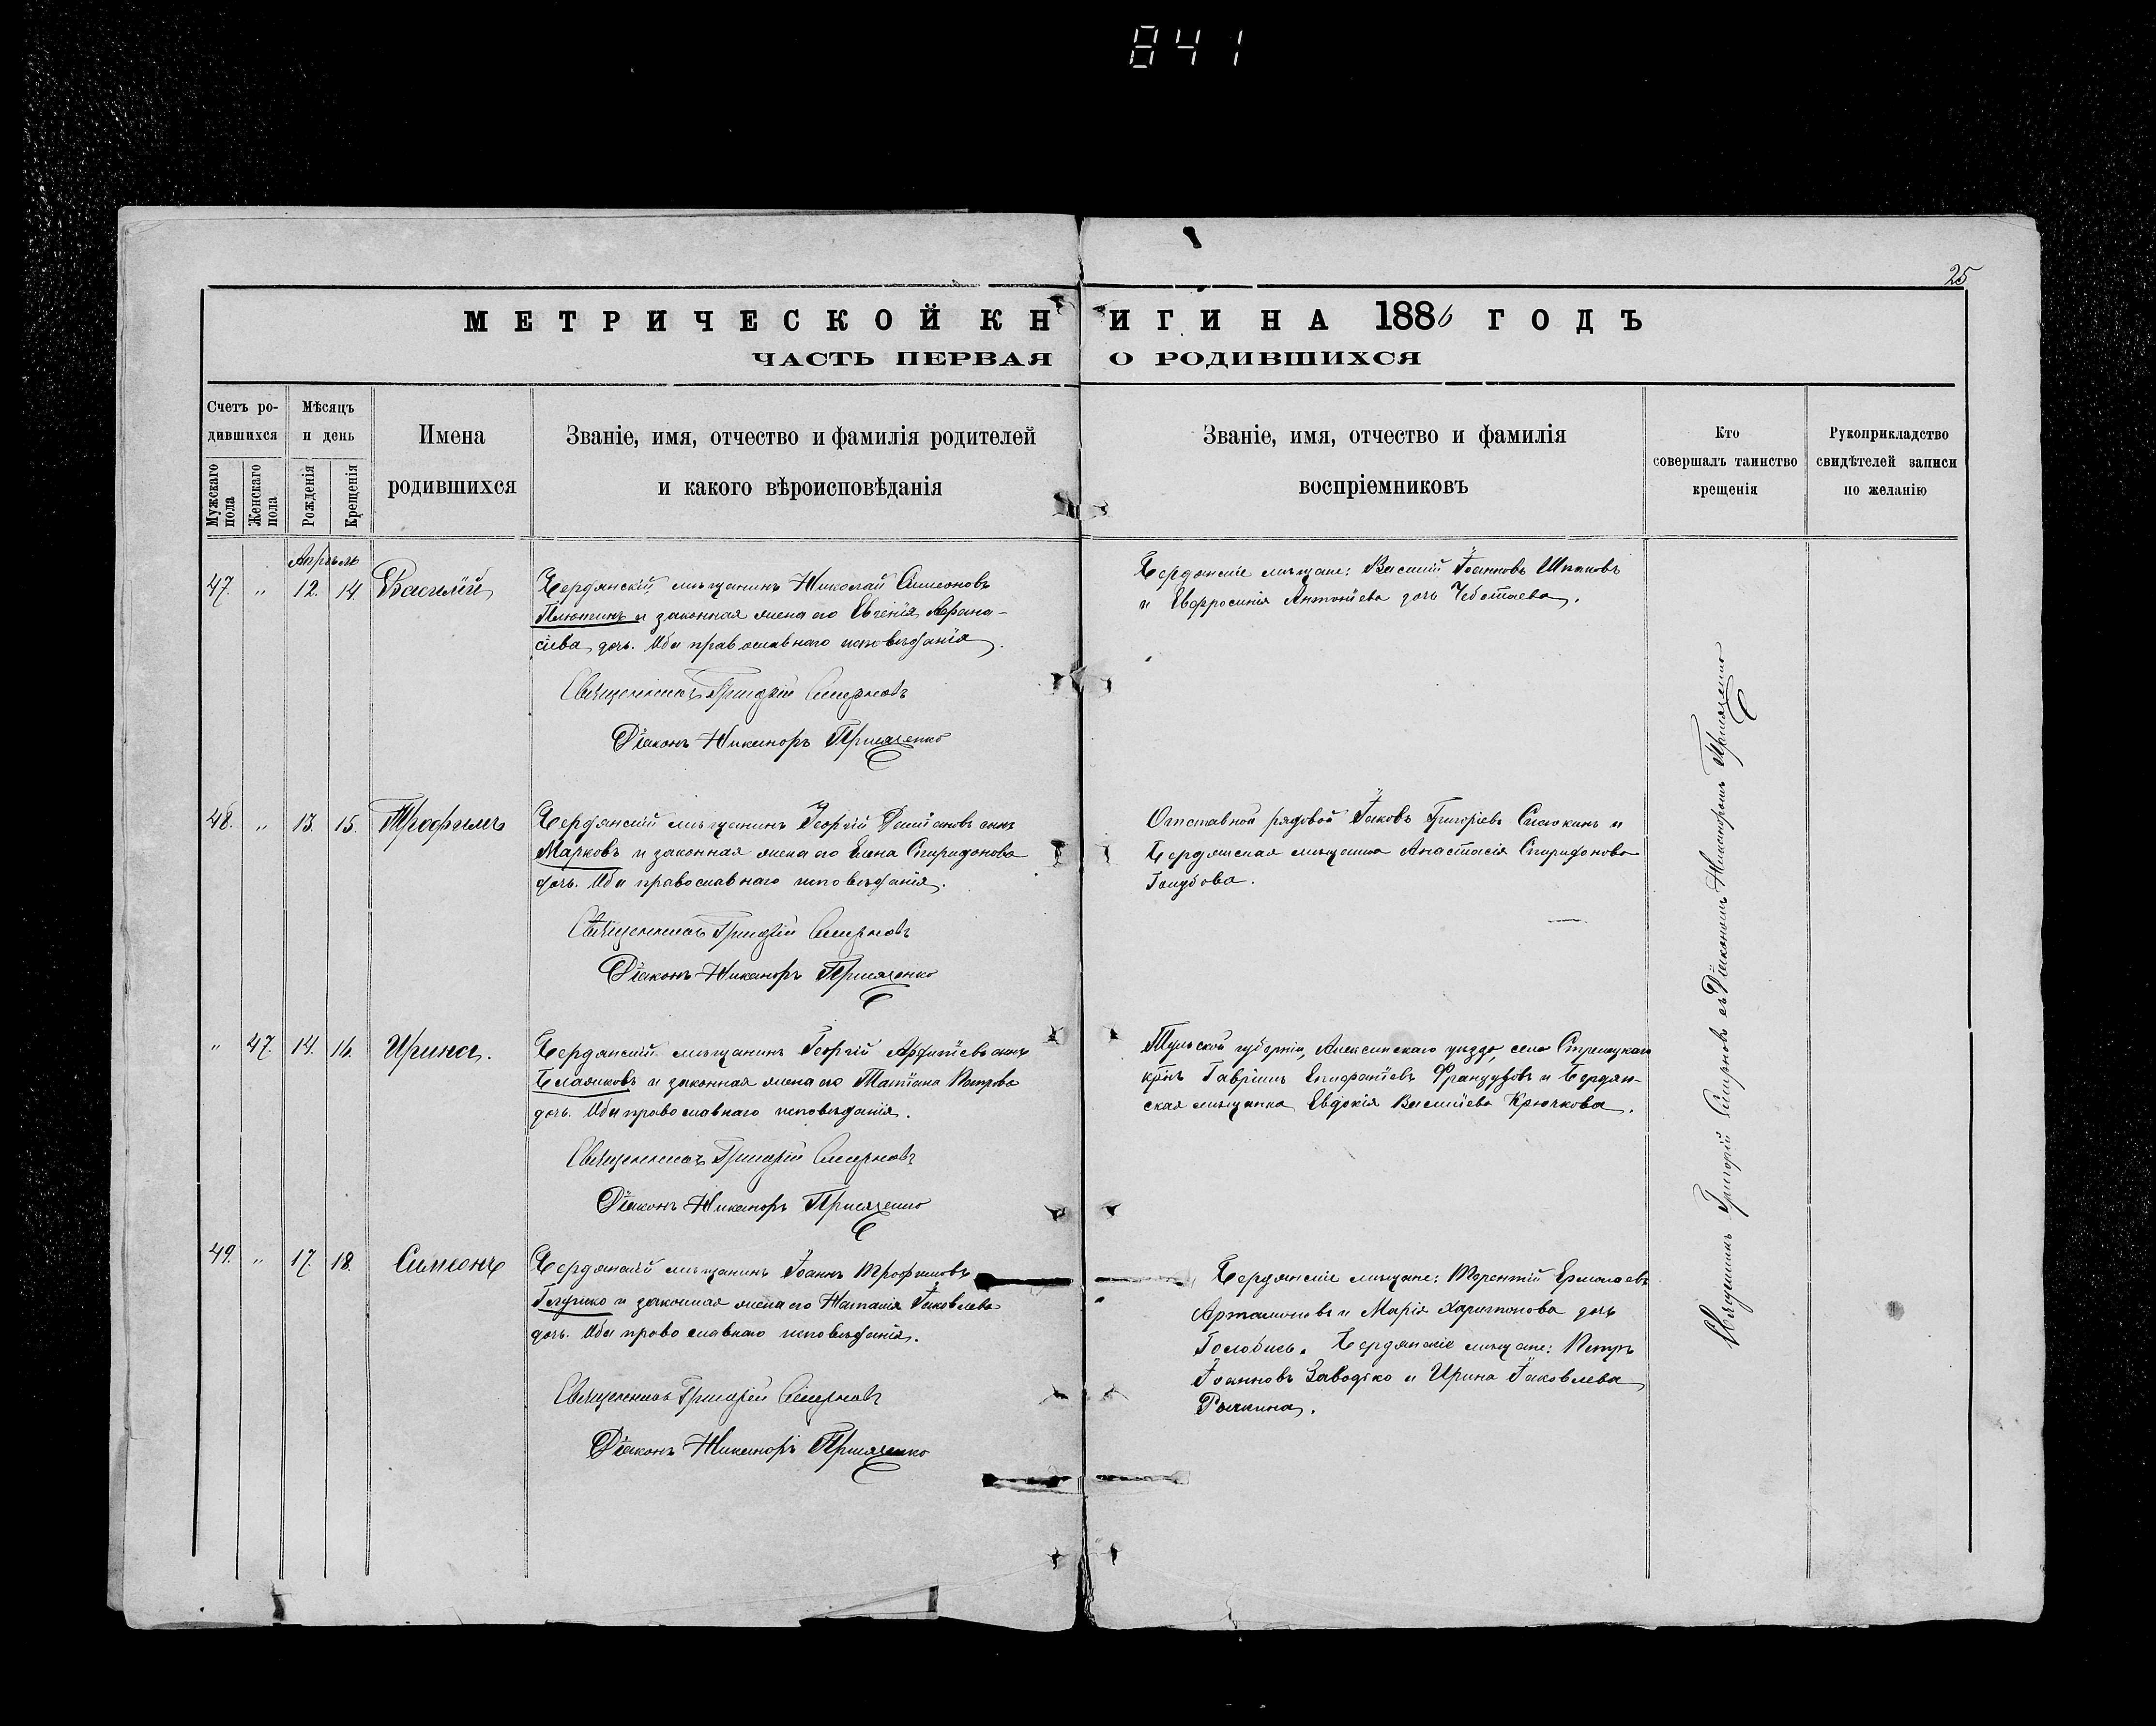 841
25
МЕТРИЧЕСКОЙ КНИГИ НА 1886 ГОДЪ
ЧАСТЬ ПЕРВАЯ О РОДИВШИХСЯ
Счетъ ро-
дившихся
Мужскаго пола
Женскаго пола
Мѣсяцъ
и день
Рожденія
Крещенія
Имена
родившихся
Званіе, имя, отчество и фамилія родителей
и какого вѣроисповѣданія
Званіе, имя, отчество и фамилія
воспріемниковъ
Кто
совершалъ таинство
крещенія
Рукоприкладство
свидѣтелей записи
по желанію
Апрѣль
47. " 12. 14 Василій
Бердянскій мѣщанинъ Николай Симеоновъ
и законная жена его Евгенія Афана-
сіева дочь. Оба православнаго исповѣданія.
Священникъ Григорій Смирновъ
Діаконъ Никаноръ Присяженко
Бердянскіе мѣщане: Василій Іоанновъ
и Евфросинія Антоніева дочь Чеботаева.
48. " 13. 15. Трофимъ
Бердянскій мѣщанинъ Георгій
Марковъ и законная жена его Елена Спиридонова
дочь. Оба православнаго исповѣданія.
Священникъ Григорій Смирновъ
Діаконъ Никаноръ Присяженко
Отставной рядовой Іаковъ Григоріевъ и
Бердянская мѣщанка Анастасія Спиридонова
Голубова.
" 47. 14. 16. Ирина.
Бердянскій мѣщанинъ Георгій
и законная жена его Татіана Петрова
дочь. Оба православнаго исповѣданія.
Священникъ Григорій Смирновъ
Діаконъ Никаноръ Присяженко
Тульской губерніи, Алексинскаго уѣзда, села Стрелецкаго
крнъ Гавріилъ Епифаніевъ Французовъ и Бердян-
ская мѣщанка Евдокія Василіева Крючкова.
49. " 17. 18. Симеонъ
Бердянскій мѣщанинъ Іоаннъ Трофимовъ
и законная жена его Наталія Іаковлева
дочь. Оба православнаго исповѣданія.
Священникъ Григорій Смирновъ
Діаконъ Никаноръ Присяженко
Бердянскіе мѣщане: Терентій Ермолаевъ
Артамоновъ и Марія Харитонова дочь
Бердянскіе мѣщане: Петръ
Іоанновъ Заводько и Ирина Іаковлева
Священникъ Григорій Смирновъ съ Діакономъ Никаноромъ Присяженко